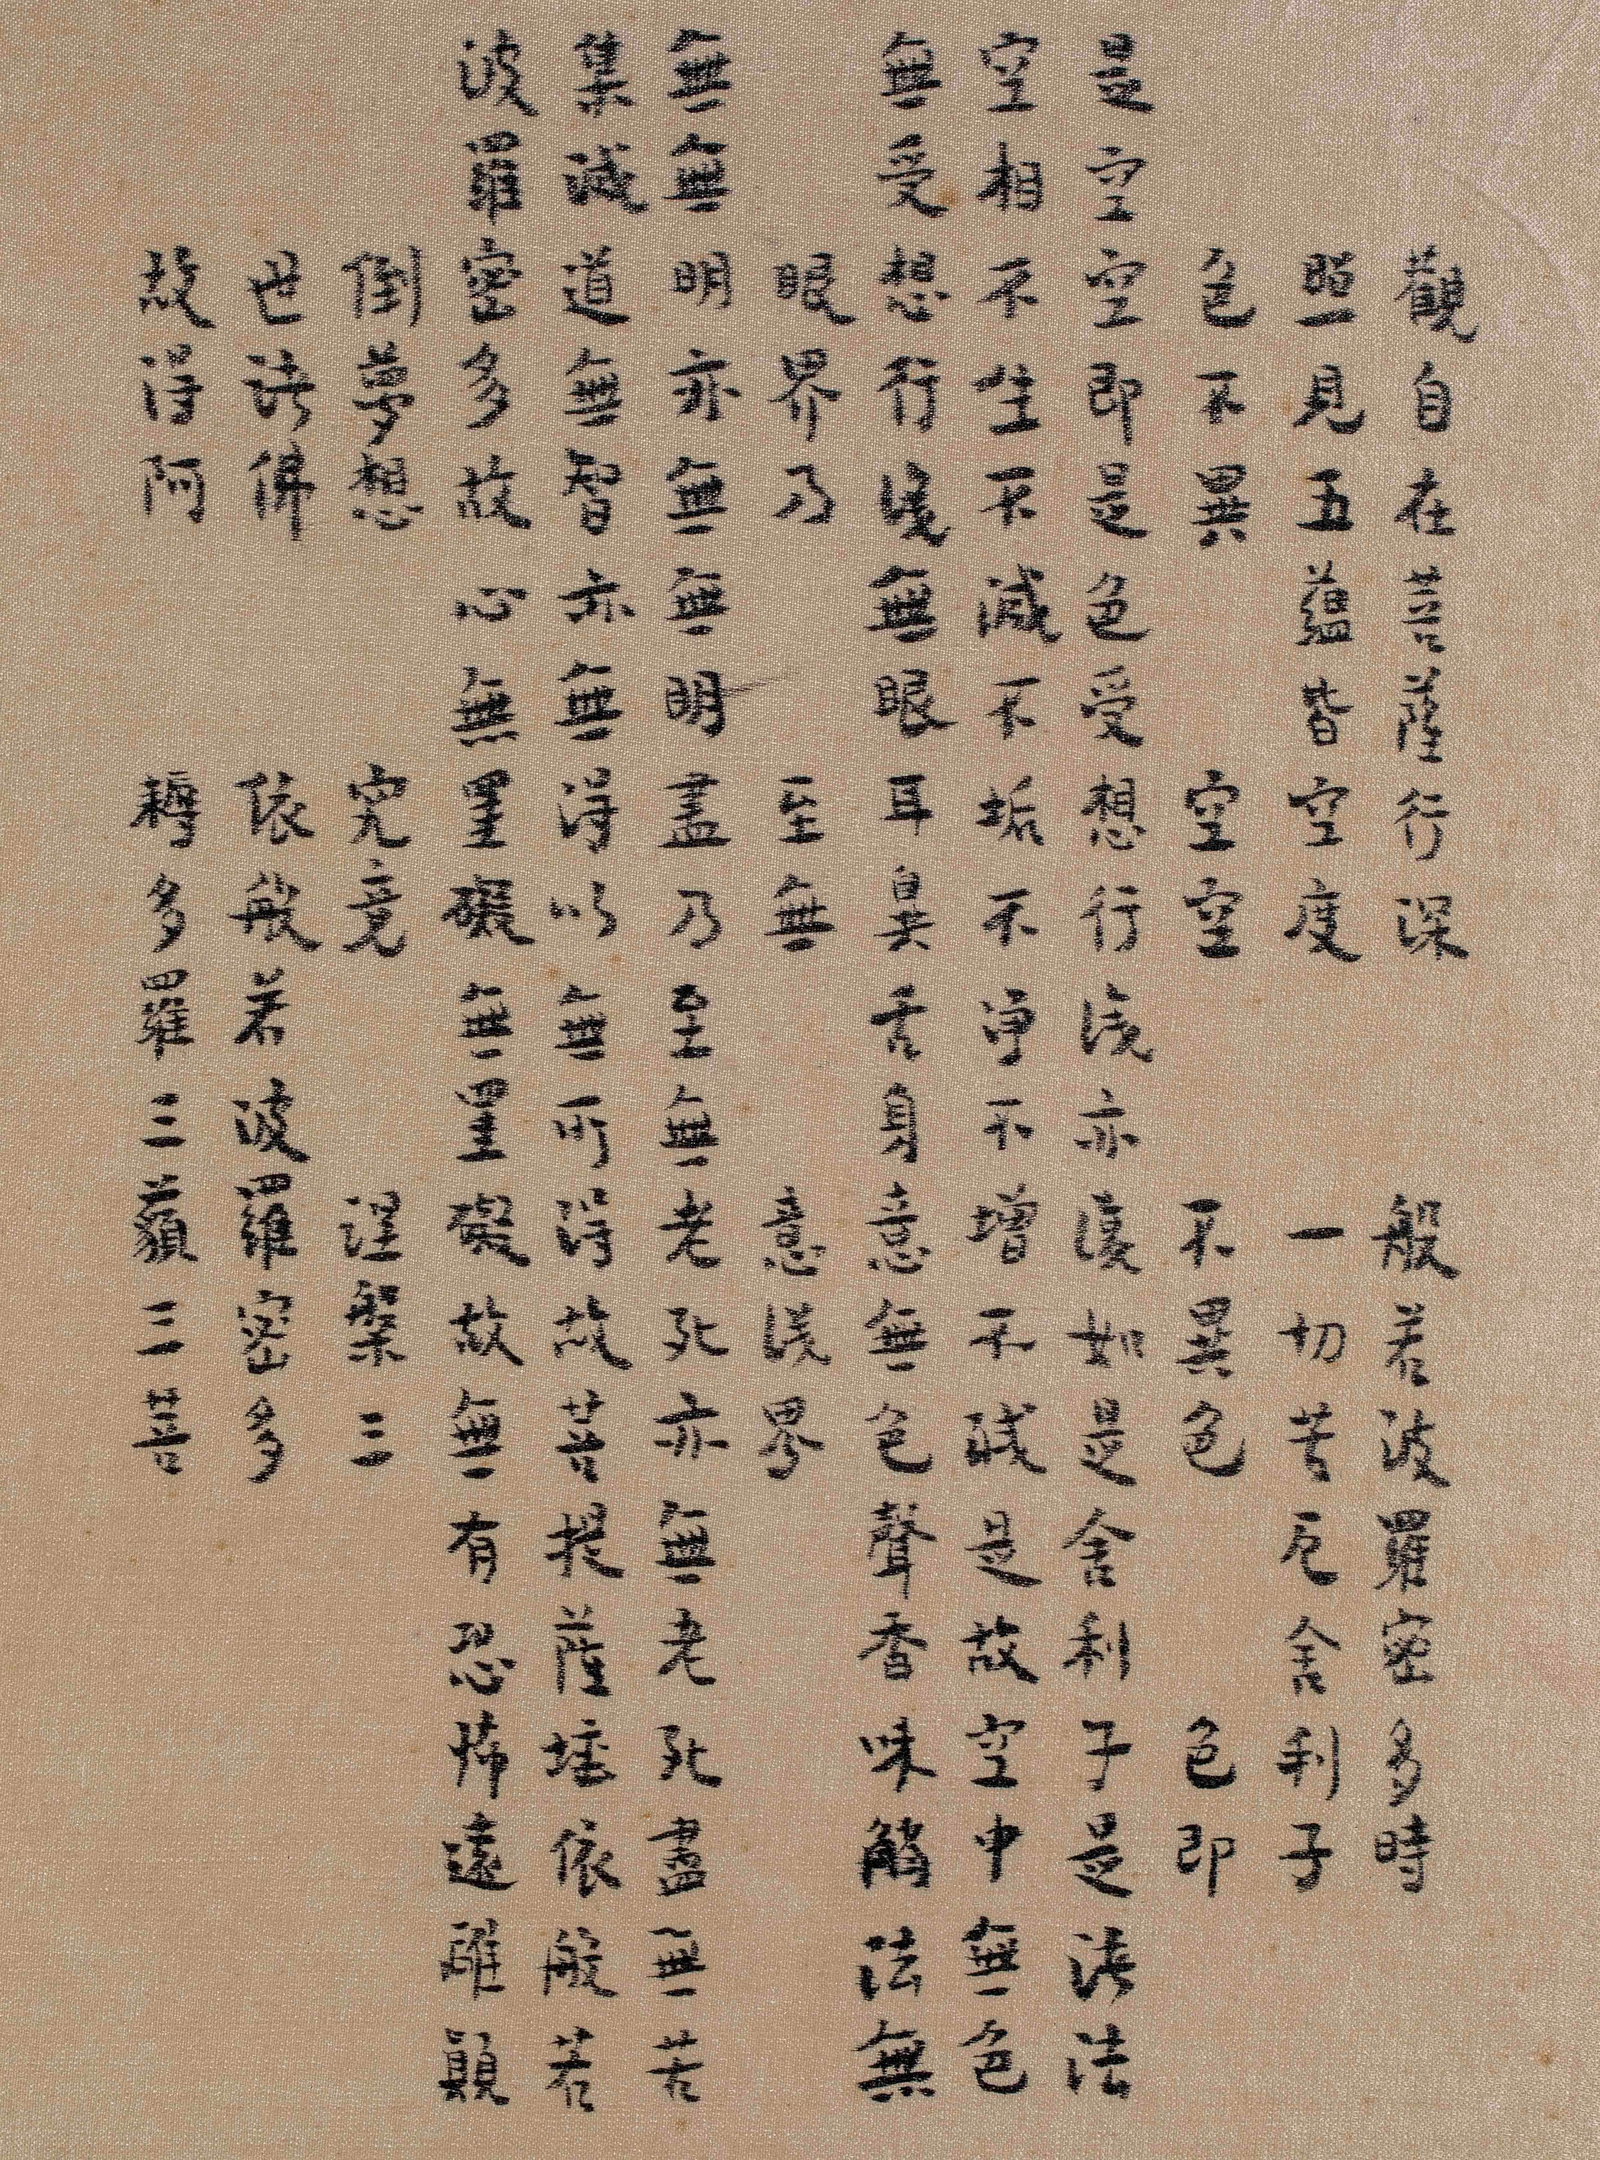 觀自在菩薩行深 般若波羅密多時
照見五蘊皆空度 一切苦厄舍利子
色不異 空空 不異色 色即
是空空即是色受想行識亦復如是舍利子是諸法
空相不生不滅不垢不淨不增不減是故空中無色
無受想行識無眼耳鼻舌身意無色聲香味觸法無
眼界乃 至無 意識界
無無明亦無無明盡乃至無老死亦無老死盡無苦
集滅道無智亦無得以無所得故菩提薩埵依般若
波羅密多故心無罣礙無罣礙故無有恐怖遠離顛
倒夢想 究竟 涅槃三
世諸佛 依般若波羅密多
故得阿 耨多羅三藐三菩